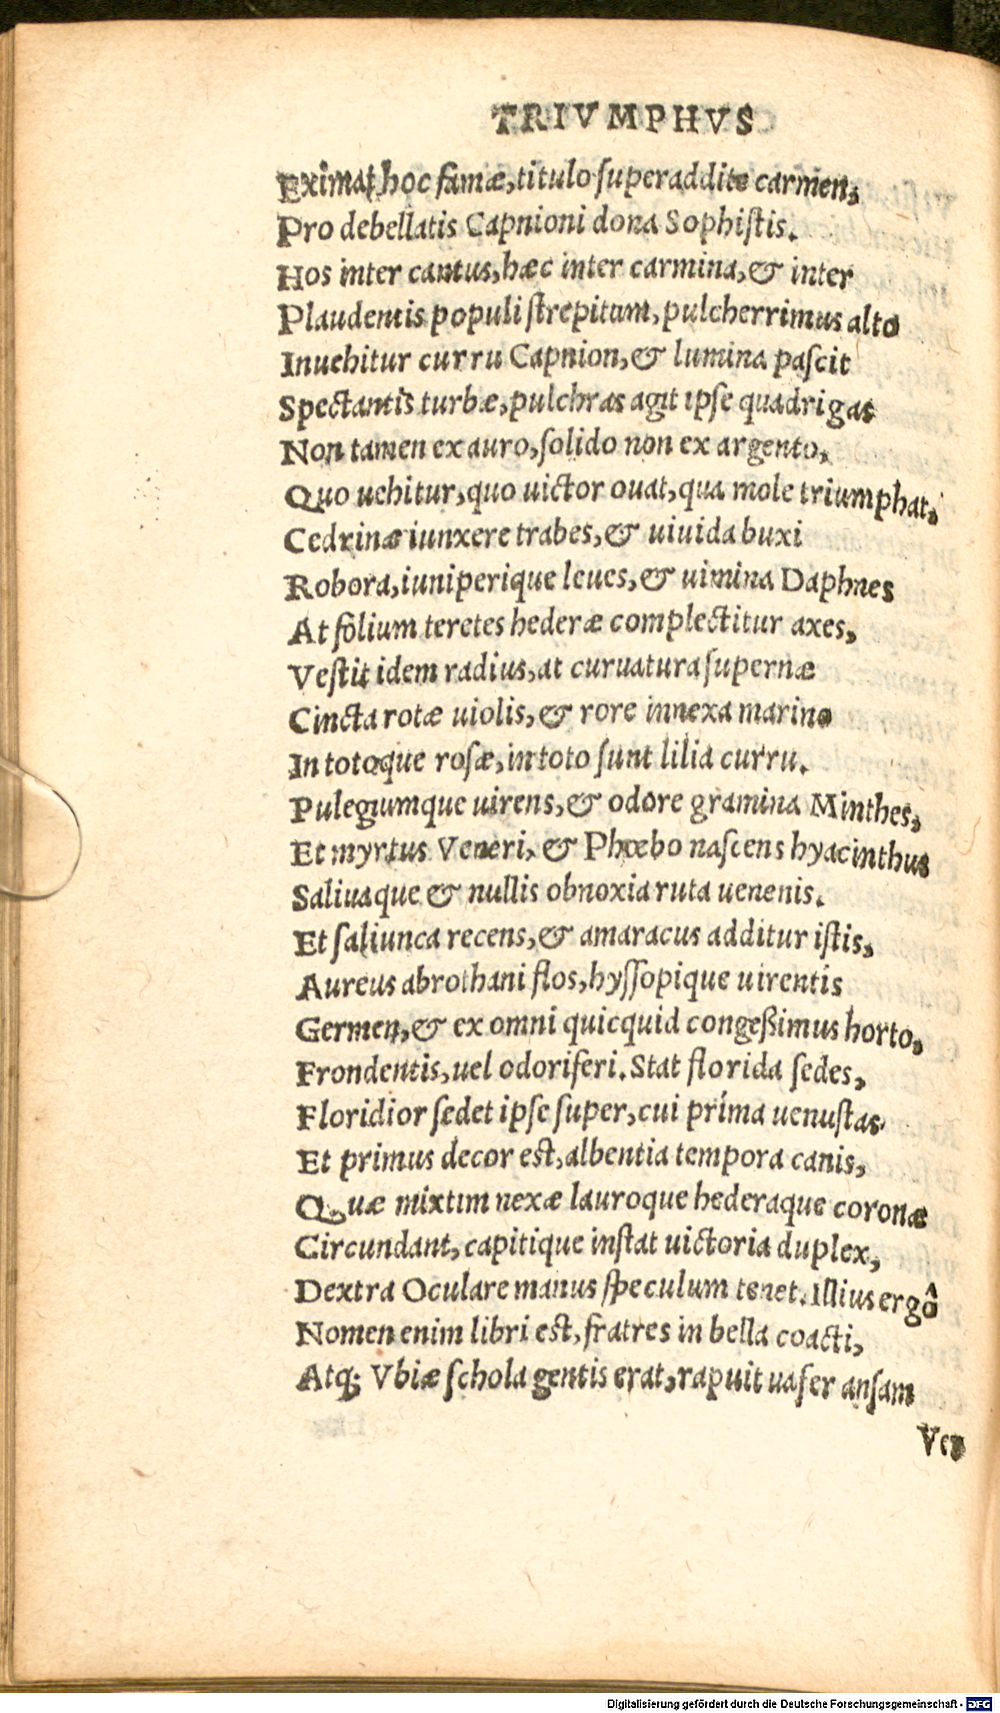 TRIVMPHVS
Eximat hoc famæ, titulo superaddite carmen,
Pro debellatis Capnioni dona Sophistis.
Hos inter cantus, hæc inter carmina, & inter
Plaudentis populi strepitum, pulcherrimus alto
Inuehitur curru Capnion, & lumina pascit
Spectantis turbæ, pulchras agit ipse quadrigas
Non tamen ex auro, solido non ex argento,
Quo uehitur, quo uictor ouat, qua mole triumphat,
Cedrinæ iunxere trabes, & uiuida buxi
Robora, iuniperique leues, & uimina Daphnes
At folium teretes hederæ complectitur axes,
Vestit idem radius, at curuatura supernæ
Cincta rotæ uiolis, & rore innexa marino
In totoque rosæ, in toto sunt lilia curru.
Pulegiumque uirens, & odore gramina Minthes,
Et myrtus Veneri, & Phœbo nascens hyacinthus
Saliuaque & nullis obnoxia ruta uenenis.
Et saliunca recens, & amaracus additur istis,
Aureus abrothani flos, hyssopique uirentis
Germen, & ex omni quicquid congeßimus horto,
Frondentis, uel odoriferi. Stat florida sedes,
Floridior sedet ipse super, cui príma uenustas
Et primus decor est, albentia tempora canis,
Quæ mixtim nexæ lauroque hederaque coronæ
Circundant, capitique instat uictoria duplex,
Dextra Oculare manus speculum tenet. Illius ergô
Nomen enim libri est, fratres in bella coacti,
Atq; Vbiæ schola gentis erat, rapuit uafer ansam
Ver
Digitalisierung gefördert durch die Deutsche Forschungsgemeinschaft - DFG